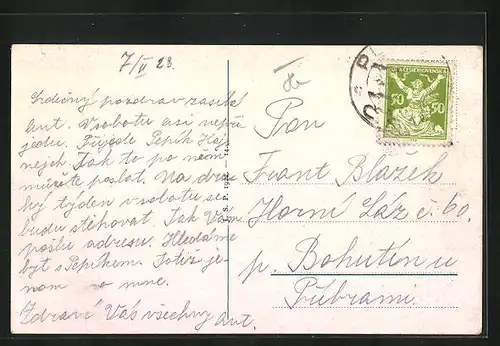 7/II 23.
Srdečný pozdrav zasílá
Ant. V sobotu asi nepři-
jedu. Přijede Pepík Háj-
nejch. Tak to po něm
můžete poslat. Na dru-
hý týden v sobotu se
budu stěhovat. Tak Vám
pošlu adresu. Hledáme
byt s Pepíkem. Totiž je-
nom on mne.
Zdraví Vás všechny
Ant.
Pan
Frant Blažek
Horní Láz č. 60.
p. Bohutín u
Příbrami
ČESKOSLOVENSKÁ
50 50